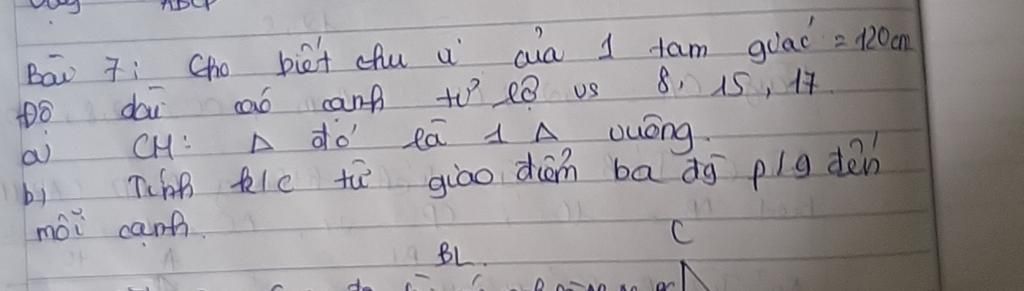 ABCP
Bài 7: Cho biết chu vi của 1 tam giác = 120cm
Độ dài các cạnh tỉ lệ vs 8, 15, 17
a) CM: Δ đó là 1 Δ vuông.
b) Tính k/c từ giao điểm ba đg p/g đến
mỗi cạnh.
C
BL.